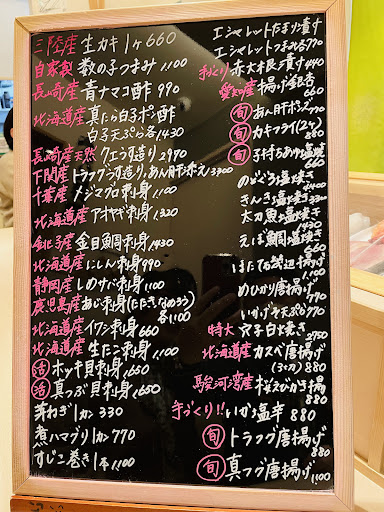 三陸産 生カキ 1ヶ 660
自家製 数の子つまみ 1,100
長崎産 青ナマコ酢 990
北海道産 真たら白子ポン酢
白子天ぷら 各1,430
長崎産天然 クエうす造り 2970
下関産 トラフグうす造り、あん肝ポン付 3,300
千葉産 メジマグロ刺身 1,650
北海道産 アオヤギ刺身 1,320
銚子産 金目鯛刺身 1,430
北海道産 にしん刺身 990
静岡産 しめサバ刺身 1,100
鹿児島産 あじ刺身(たたき、なめろう)
各1,100
北海道産 イワシ刺身 660
北海道産 生たこ刺身 1,100
活 ホッキ貝刺身 1,650
活 真つぶ貝刺身 1,650
芽ねぎ 1カン 330
煮ハマグリ 1カン 770
すじこ巻き 1本 1,100
エシャレットたまり漬け
エシャレットつまみ 770
手づくり 赤大根漬け 440
愛知産 揚げ銀杏
660
旬 あん肝ポン酢 770
旬 カキフライ(2ヶ)
880
旬 子持ちあゆ塩焼
660
のどぐろ塩焼き
きんき塩焼き 3300
太刀魚塩焼き
えぼ鯛塩焼き
660
ほたて磯辺揚げ
1,100
めひかり唐揚げ
770
いかげそ天ぷら 770
特大 穴子白焼き
2750
北海道産 カスベ唐揚げ
(3ヶ) 880
駿河湾産 桜えびかき揚
880
手づくり!! いか塩辛 880
旬 トラフグ唐揚げ
880
旬 真フグ唐揚げ
1,100